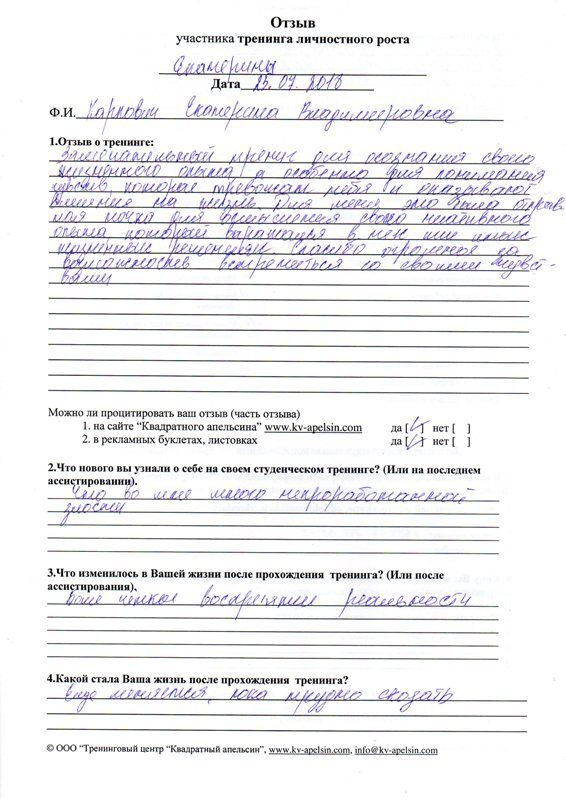 Отзыв
участника тренинга личностного роста
Екатерины
Дата 23.07.2018
Ф.И. Карпович Екатерина Владимировна
1.Отзыв о тренинге:
Замечательный тренинг для осознания своего
жизненного опыта, а особенно для понимания
чувств которые тревожат тебя и оказывают
влияния на жизнь. Для меня это была отправ
ная точка для осмысления своего негативного
опыта который выражался в тех или иных
жизненных решениях. Спасибо огромное за
возможность встретиться со своими чувст-
вами
Можно ли процитировать ваш отзыв (часть отзыва)
1. на сайте “Квадратного апельсина” www.kv-apelsin.com да [ ✓ ] нет [ ]
2. в рекламных буклетах, листовках да [ ✓ ] нет [ ]
2.Что нового вы узнали о себе на своем студенческом тренинге? (Или на последнем
ассистировании).
Что во мне много непроработанной
злости
3.Что изменилось в Вашей жизни после прохождения тренинга? (Или после
ассистирования),
Более четкое восприятие реальности
4.Какой стала Ваша жизнь после прохождения тренинга?
меняется, пока трудно сказать
© ООО “Тренинговый центр “Квадратный апельсин”, www.kv-apelsin.com, info@kv-apelsin.com